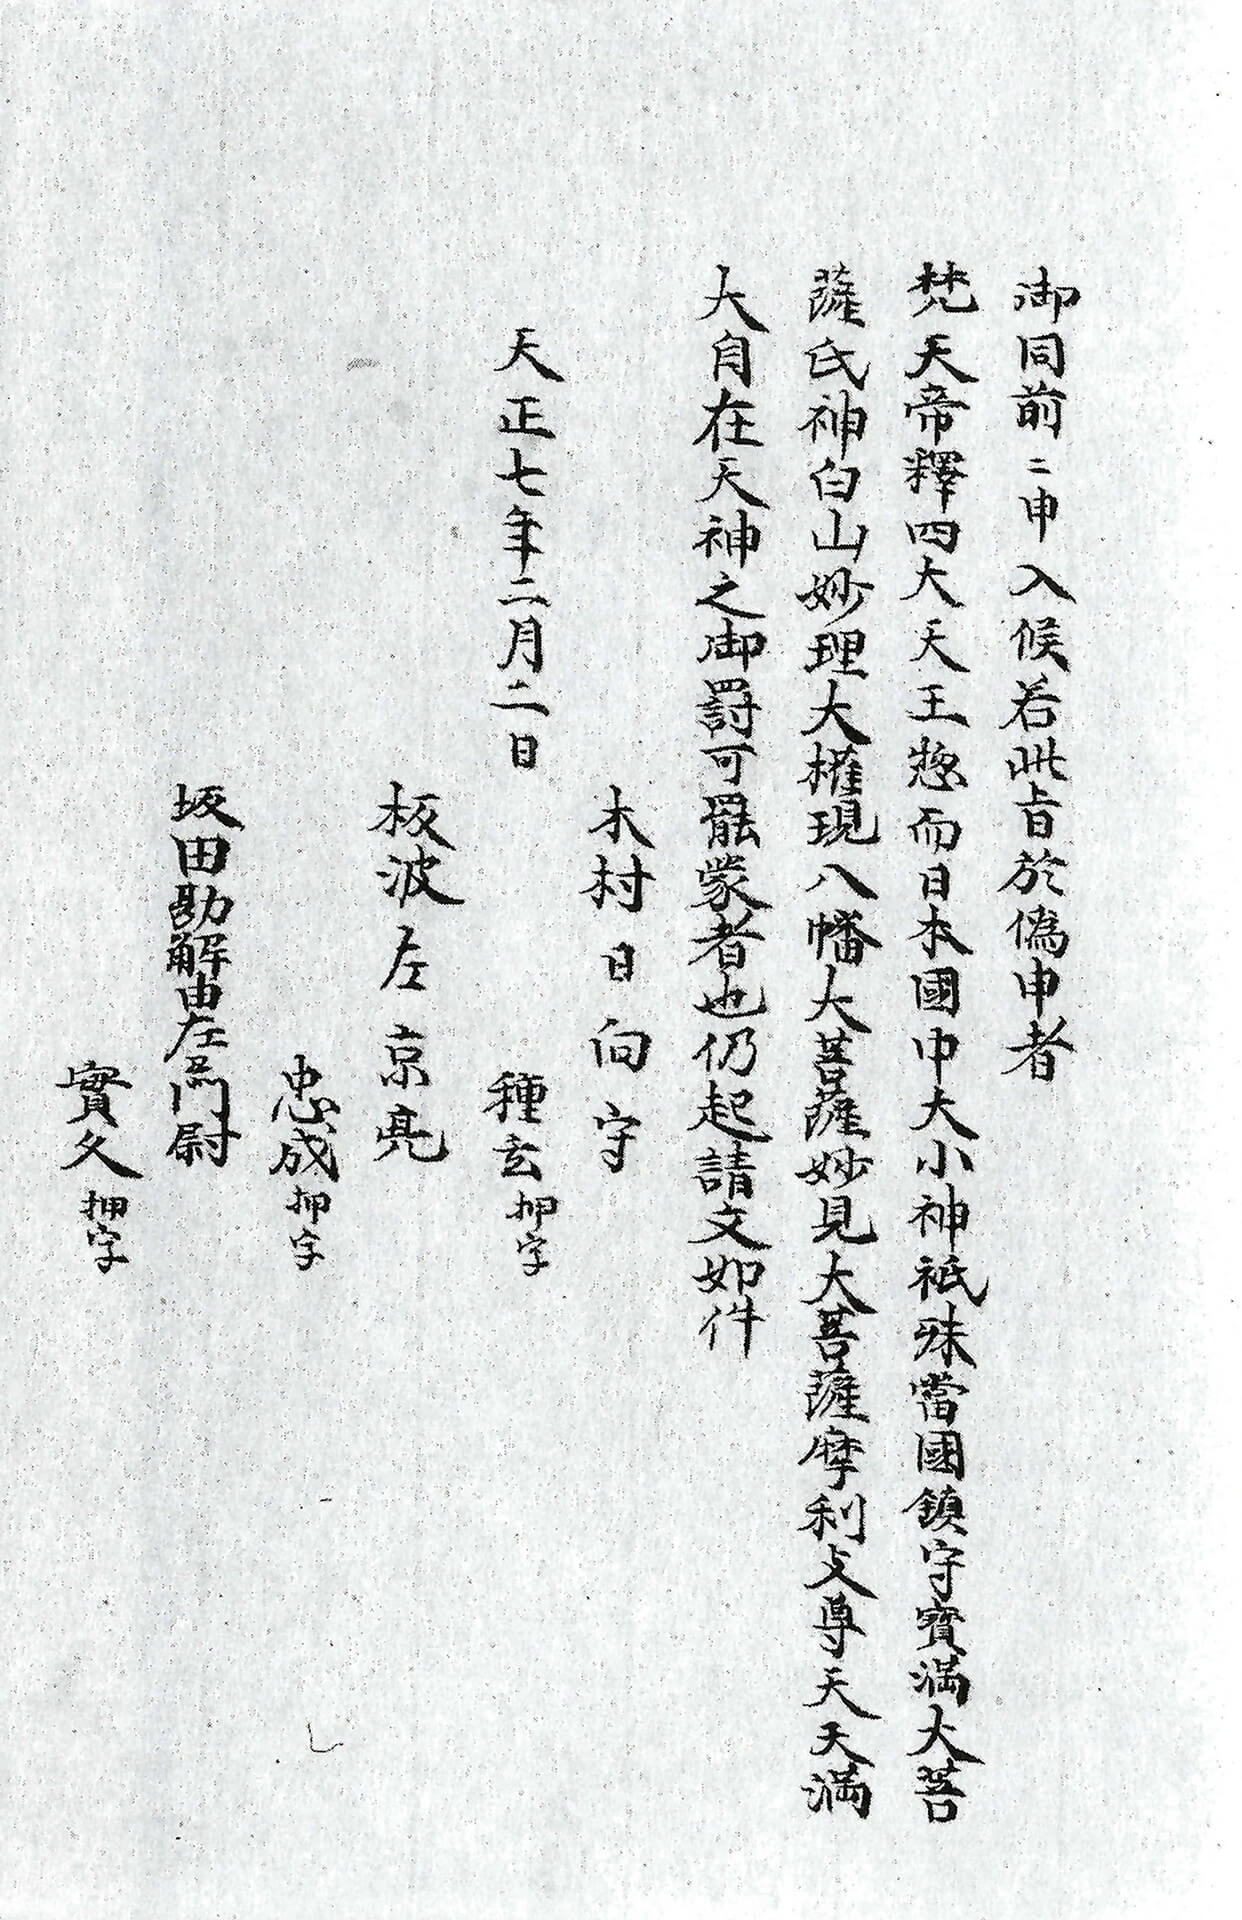 御同前ニ申入候若此旨於偽申者
梵天帝釋四大天王惣而日本國中大小神祇殊當國鎮守寳満大菩
薩氏神白山妙理大権現八幡大菩薩妙見大菩薩摩利支尊天天満
大自在天神之御罸可罷蒙者也仍起請文如件
木村日向守
天正七年二月二日
種玄押字
板波左京亮
忠成押字
坂田勘解由左衛門尉
實久押字